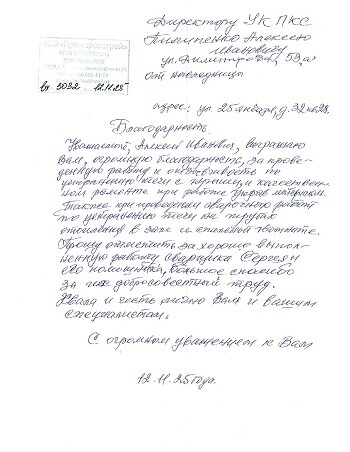 Директору УК ПКС
Пилипенко Алексею
Ивановичу
ул. Димитрова, 59, а
от
вх 3032 12.11.25
адрес: ул. 25 января, д. 32 кв 28.
Благодарность.
Уважаемый, Алексей Иванович, выражаю
Вам, огромную благодарность, за прове-
дённую работу и отзывчивость по
устранению течи с крыши, и качествен-
ном ремонте при работе материалом.
Также при проведении сварочной работ
по устранению течи на трубах
отопления в зале и спальной комнате.
Прошу отметить за хорошо выпол-
ненную работу сварщика Сергея и
его помощника, большое спасибо
за их добросовестный труд.
Хвала и честь лично Вам и вашим
специалистам.
С огромным уважением к Вам
12.11.25 года.